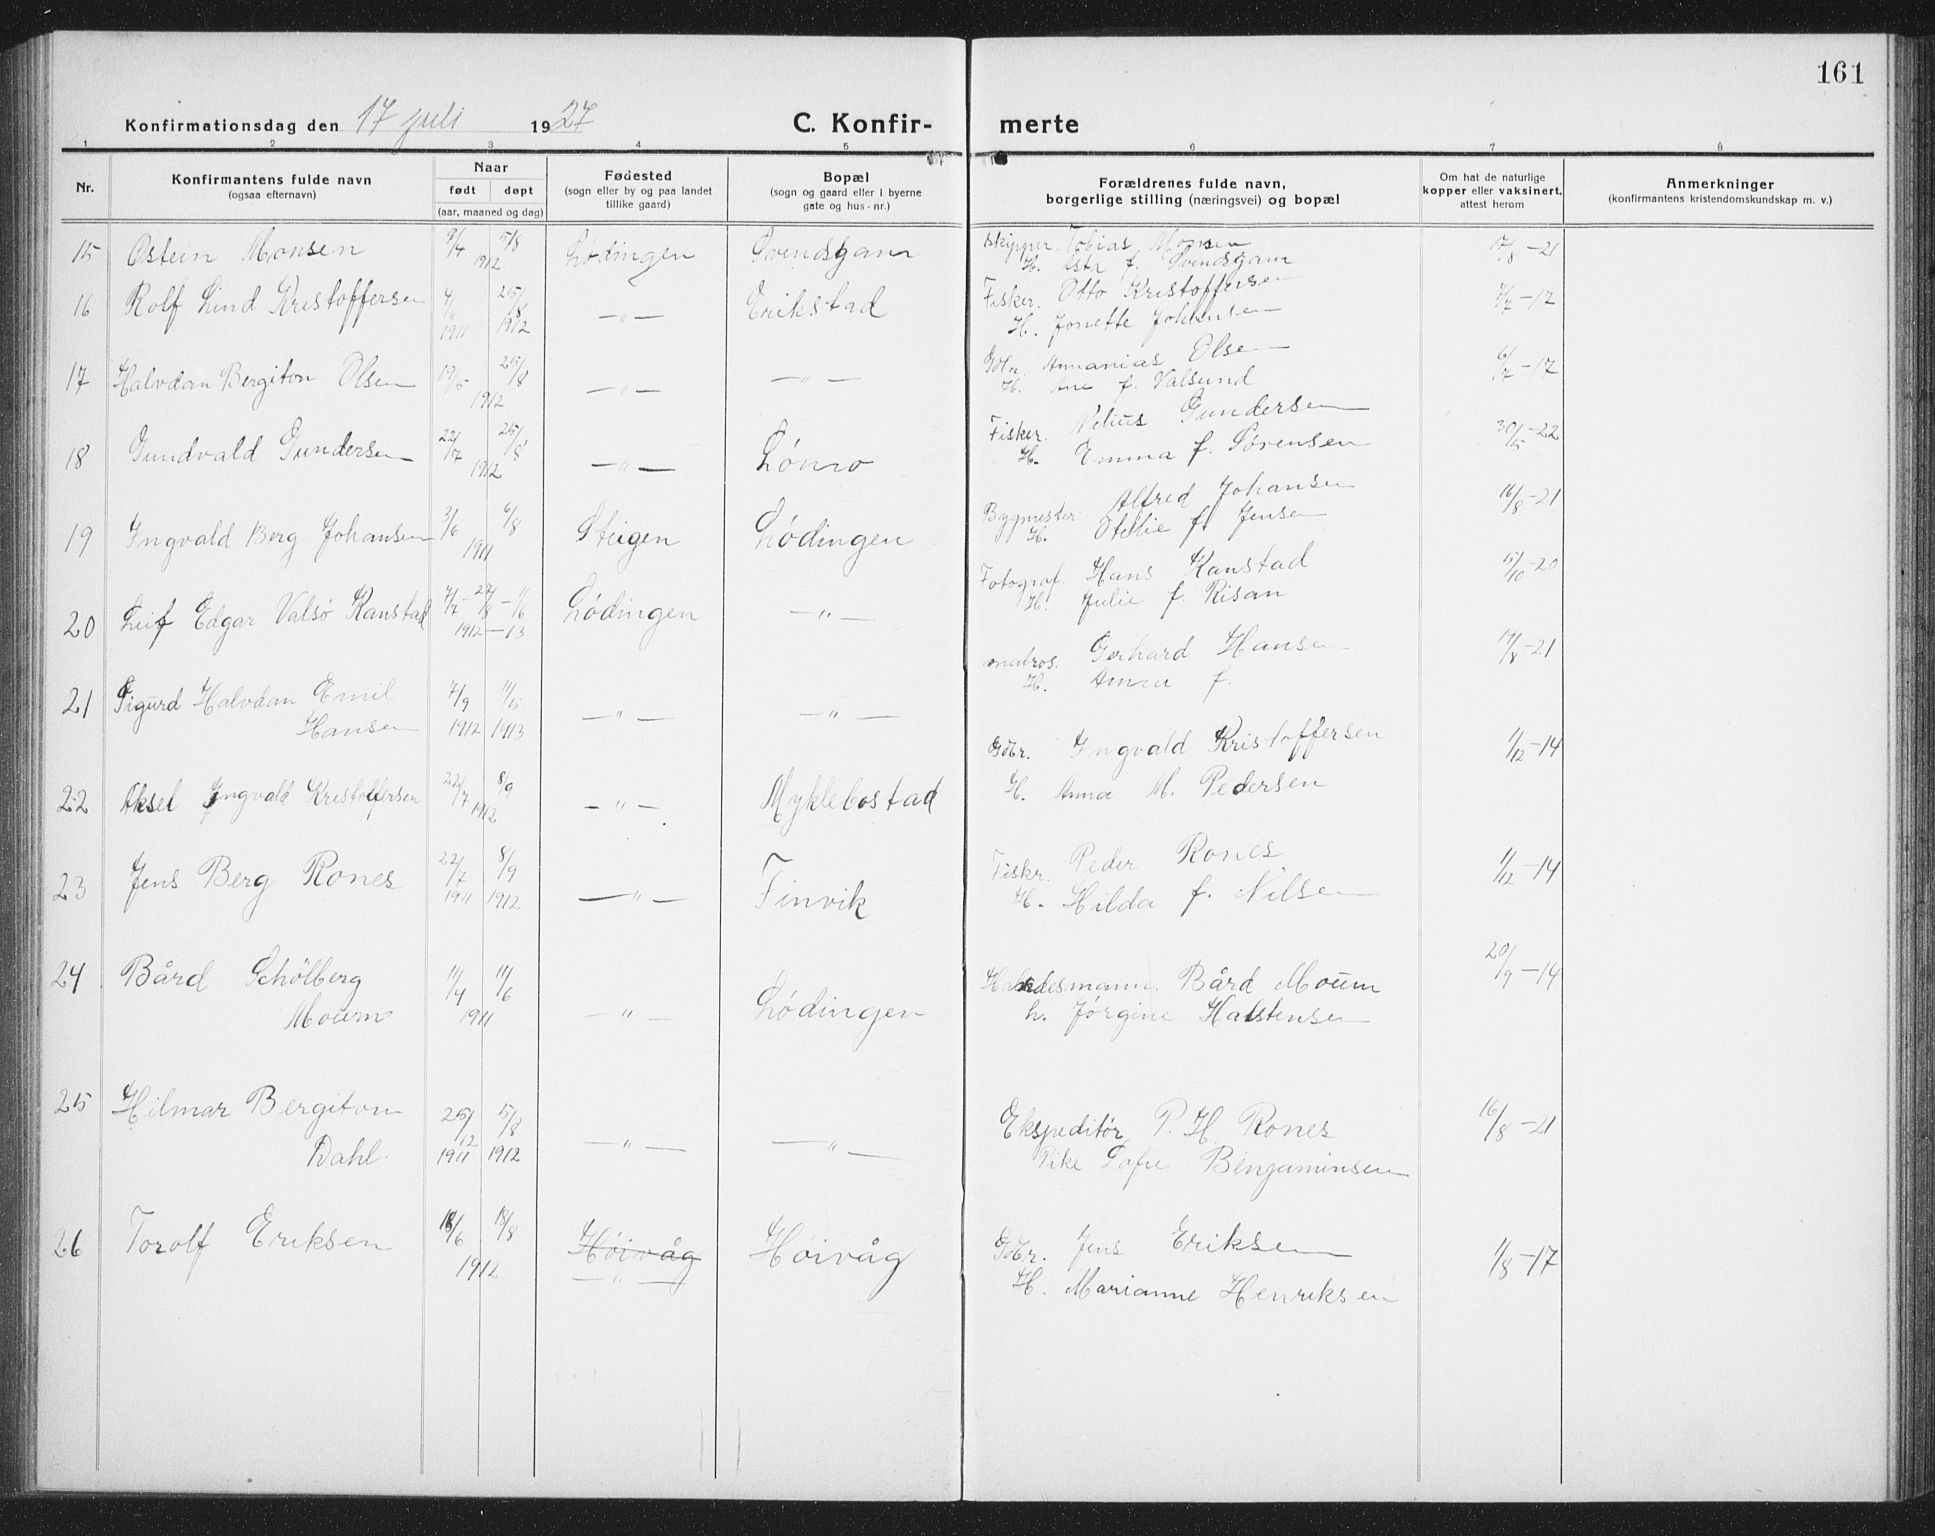 161
Konfirmationsdag den 17 juli 1927 C. Konfir- merte
1 2 3 4 5 6 7 8
Nr.
Konfirmantens fulde navn
(ogsaa efternavn)
Naar
født døpt
(aar, maaned og dag)
Fødested
(sogn eller by og paa landet
tillike gaard)
Bopæl
(sogn og gaard eller i byerne
gate og hus-nr.)
Forældrenes fulde navn,
borgerlige stilling (næringsvei) og bopæl
Om hat de naturlige
kopper eller vaksinert,
attest herom
Anmerkninger
(konfirmantens kristendomskundskap m. v.)
15 Østein Monsen 9/4 5/8 1912 Lødingen Svendsgam Skipper. Tobias Monsen 17/8-21
H. f. Svendsgam
16 Rolf Lind Kristoffersen 25/8 1911 1912 —"— Erikstad Fisker. Otto Kristoffersen 7/7-17
H. Jonette Johansen
17 Halvdan Bergiton Olsen 19/5 25/8 1912 —"— —"— Gbr. Annanias Olsen 6/7-17
H. Ane f. Valsund
18 Gundvald Gundersen 22/7 25/8 1912 —"— Lønro Fisker. Nelius Gundersen 30/5-22
H. Emma f. Sørensen
19 Ingvald Berg Johansen 3/6 6/8 1911 Steigen Lødingen Bygmester Alfred Johansen 16/8-21
H. Otellie f. Jensen
20 Leif Edgar Valsø Kanstad 7/7 - 22/8 - 1/6 1912-13 Lødingen —"— Fotograf. Hans Kanstad 5/10-20
H. Julie f. Risan
21 Sigurd Halvdan Emil 7/9 —"— —"— matros. Gerhard Hansen 19/8-21
Hansen 1912 1913 H. Anna f.
22 Aksel Ingvald Kristoffersen 22/7 8/9 1912 —"— Myklebostad Gbr. Ingvald Kristoffersen 1/12-14
H. Anna M. Pedersen
23 Jens Berg Rones 22/7 8/9 1911 1912 —"— Finvik Fiskr. Peder Rones 1/12-14
H. Hilda f. Nilsen
24 Bård Schölberg 11/4 11/6 Handesmann. Bård Moum 20/9-14
Moum 1911 —"— Lødingen h. Jørgine Halstensen
25 Hilmar Bergiton 25/12 5/8 Ekspeditør P. H. Rones 16/8-21
Dahl. 1911 1912 —"— —"— Pike Sofie Benjaminsen
26 Torolf Eriksen 18/6 18/8 1912 Høivåg —"— Høivåg Gbr. Jens Eriksen 1/8-17
H. Marianne Henriksen